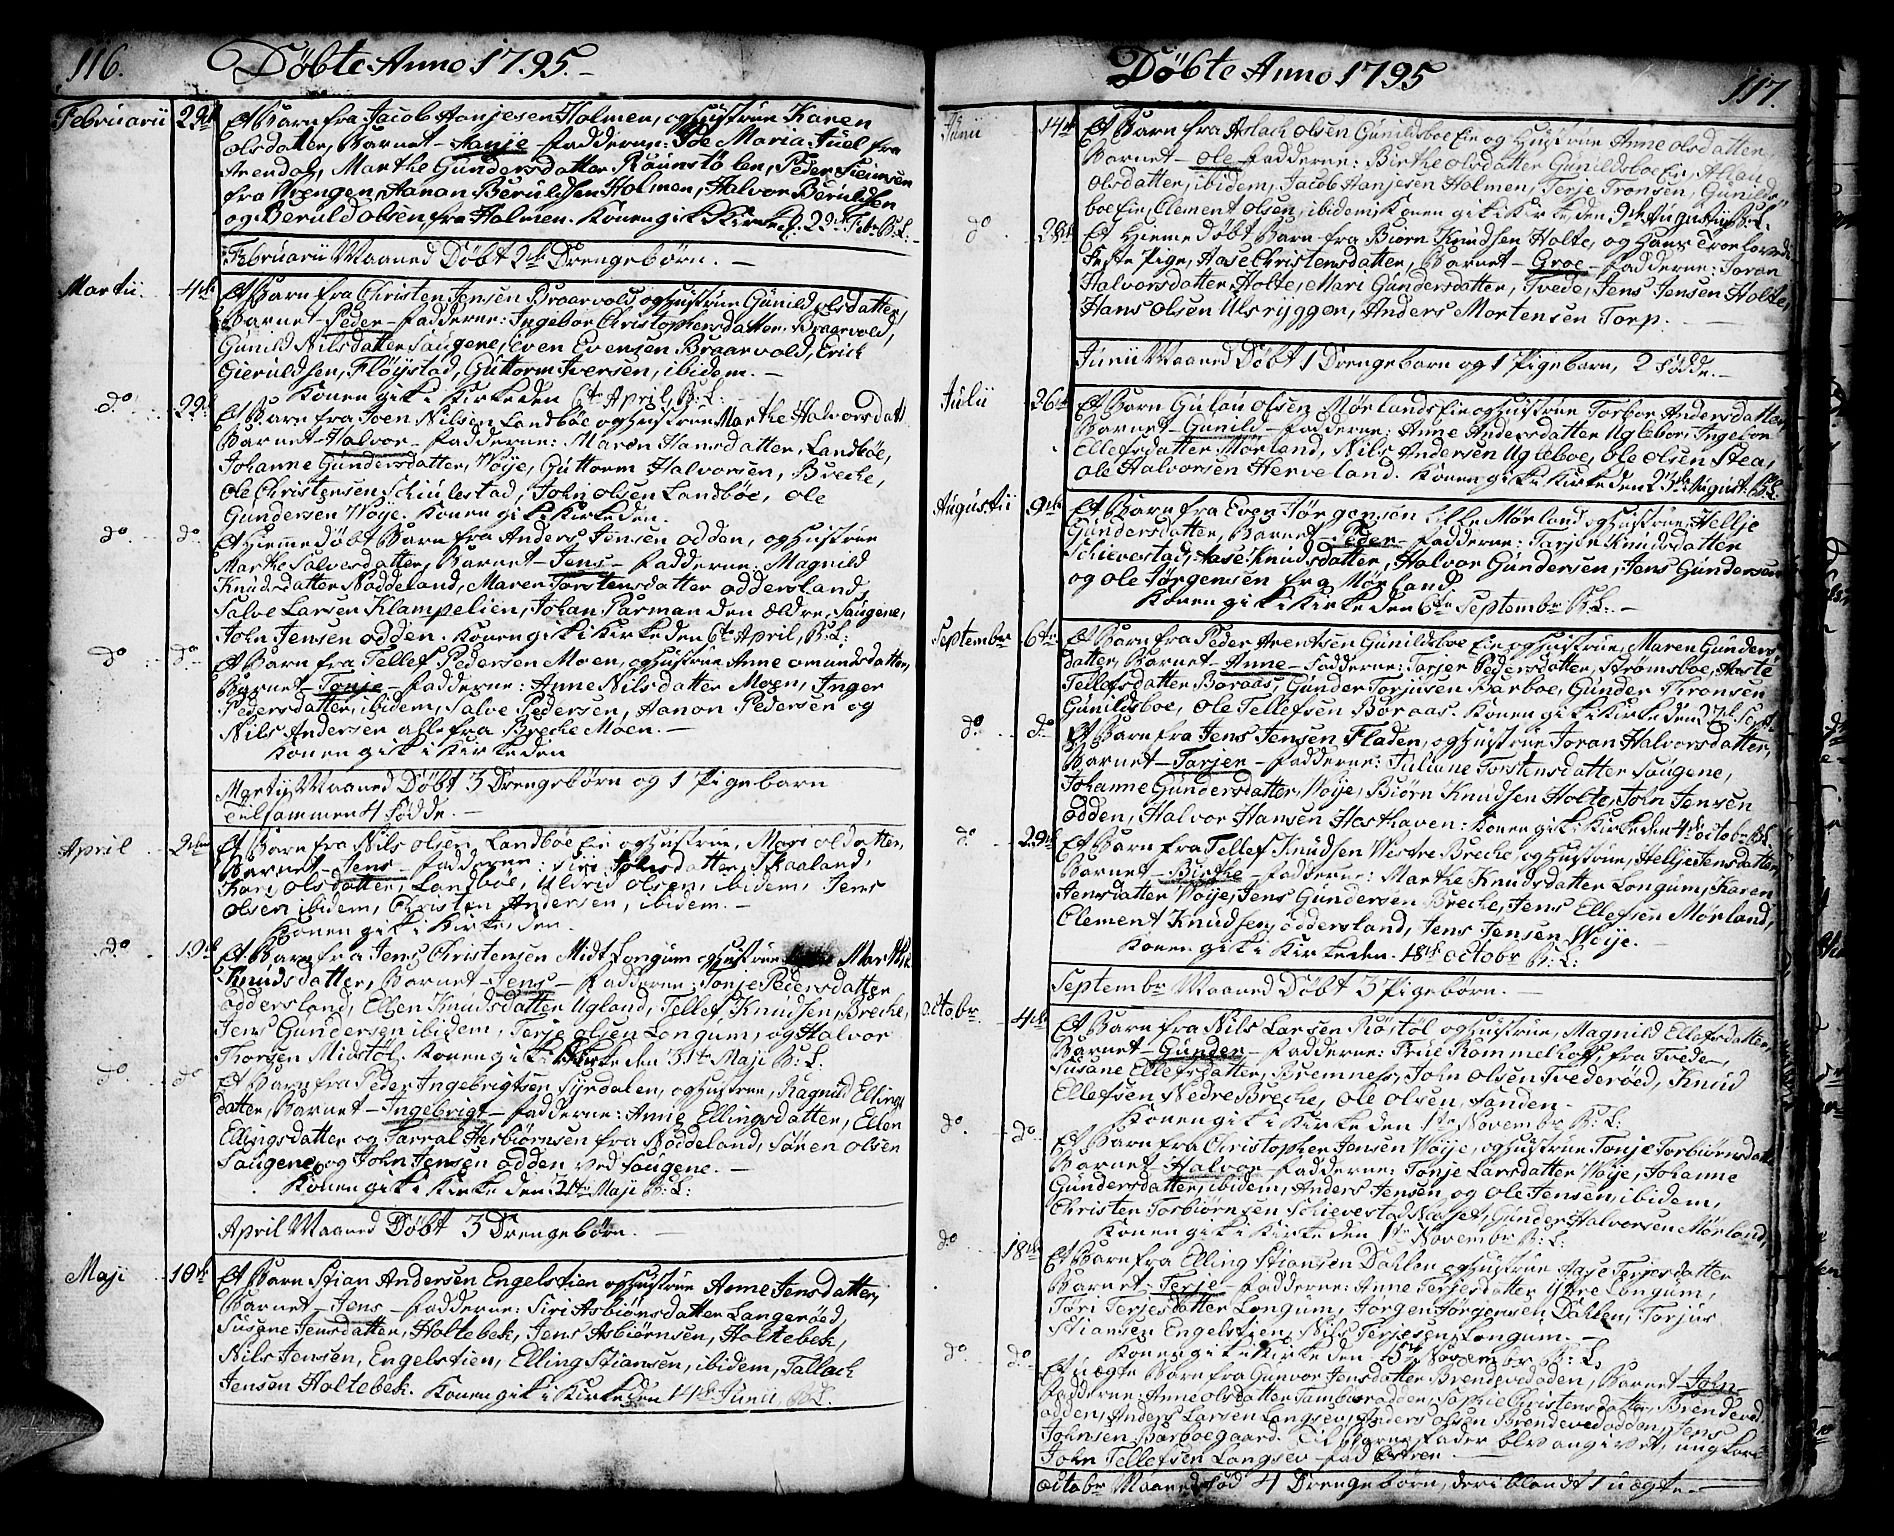 116. Döbte Anno 1795.
Februarii 22de Et Barn fra Jacob Hanjesen Holmen, og Hustrue Karen
Olsdatter, Barnet - Hanje - Fadderne: Maria Juel fra
Arendal, Marthe Gundersdatter, Peder
fra Vrengen, Hanon Beruldsen Holmen, Halvor Beruldsen
og Beruld Olsen fra Holmen. Konen gik i Kirke d. 22de Febr B: L:
Februarii Maaned Döbt 2de Drengebörn.
Martii 4de Et Barn fra Christen Jensen Braarvold og Hustrue Gunild Olsdatter,
Barnet - Peder - Fadderne: Ingebor Christophersdatter, Braarvold,
Gunild Nilsdatter Saugene, Even Evensen Braarvold, Erich
Gieruldsen, Flöystad, Guttorm Iversen, ibidem.
Konen gik i Kirke den 6te April, B: L:
do 22de Et Barn fra Joen Nilsen Landböe og Hustrue Marthe Halvorsdatt
Barnet - Halvor - Fadderne: Maren Hansdatter, Landböe,
Johanne Gundersdatter, Vöye, Guttorm Halvorsen, Breche,
Ole Christensen Schiulestad, John Olsen Landböe, Ole
Gundersen Vöye. Konen gik i Kirke den.
do do Et Hiemmedöbt Barn fra Anders Jensen Odden, og Hustrue
Marthe Salvesdatter, Barnet - Jens - Fadderne: Magnild
Knudsdatter Nöddeland, Maren Torstensdatter Oddersland,
Salve Larsen Klampelien, Johan Parman den ældre, Saugene,
John Jensen Odden. Konen gik i Kirke den 6te April, B: L:
do do Et Barn fra Tellef Pedersen Moen, og Hustrue Anne Omundsdatter,
Barnet - Tonje - Fadderne: Anne Nilsdatter Moen, Inger
Pedersdatter, ibidem, Salve Pedersen, Hanon Pedersen og
Nils Andersen alle fra Breche Moen.
Konen gik i Kirke den
Martii Maaned Döbt 3 Drengebörn og 1 Pigebarn
tilsammen 4 födde.
April Et Barn fra Nils Olsen, Landböe Eie og Hustrue, Mari Oldatter,
Barnet - Jens - Fadderne: Siri Johnsdatter, Skaaland,
Kari Olsdatter, Landböe, Uldrid Olsen, ibidem, Jens
Olsen ibidem, Christen Andersen, ibidem.
Konen gik i Kirke, den.
do 19de Et Barn fra Jens Christensen Midt Longum og Hustrue Marthe
Knudsdatter, Barnet - Jens - Fadderne: Tonje Pedersdatter
Oddersland, Ellen Knudsdatter Ugland, Tellef Knudsen, Breche,
Jens Gundersen ibidem, Terje Olsen Longum, og Halvor
Thorsen Midstöl. Konen gik i Kirke den 31te Maji B: L:
do do Et Barn fra Peder Ingebrigtsen Syrdalen, og Hustrue, Ragnild Ellings
datter, Barnet - Ingebrigt - Fadderne: Anne Ellingsdatter, Ellen
Ellingsdatter og Tarral Herbiörnsen fra Nöddeland, Sören Olsen
Saugene, og John Jensen Odden ved Saugene.
Konen gik i Kirke den Maji B: L:
April Maaned Döbt 3 Drengebörn.
Maji 10de Et Barn Stian Andersen Engelstien og Hustrue Anne Jensdatter,
Barnet - Jens - Fadderne: Siri Asbiörnsdatter Langeröed,
Susane Jensdatter, Holtebek, Jens Asbiörnsen, Holtebek,
Nils Jensen, Engelstien, Elling Stiansen, ibidem, Tallach
Jensen Holtebek. Konen gik i Kirke den 14de Junii B: L:
Döbte Anno 1795 117.
Junii 14de Et Barn fra Aslach Olsen Gunildsboe Eie og Hustrue Anne Olsdatter,
Barnet - Ole - Fadderne: Birthe Olsdatter Gunildsboe Eie,
Olsdatter, ibidem, Jacob Hanjesen Holmen, Terje Tronsen, Gunilds
boe Eie, Clement Olsen, ibidem, Konen gik i Kirke den 9de Augustii B: L:
do 28de Et Hiemmedöbt Barn fra Biörn Knudsen Holte, og Hans
Feste Pige, Aase Christensdatter, Barnet - Groe - Fadderne: Joran
Halvorsdatter Holte, Mari Gundersdatter, Tvede, Jens Jensen Holte,
Hans Olsen Ulsryggen, Anders Mortensen Torp.
Junii Maaned Döbt 1 Drengebarn og 1 Pigebarn, 2 födde.
Julii 26de Et Barn Gulou Olsen Mörlands Eie og Hustrue Torbor Andersdatter,
Barnet - Gunild - Fadderne: Anne Andersdatter Ugleboe, Ingebor
Ellefsdatter Mörland, Nils Andersen Ugleboe, Ole Olsen Stea,
Ole Halvorsen Herveland. Konen gik i Kirke den 23de August. B: L:
Augustii 9de Et Barn fra Even Jörgensen Lille Mörland og Hustrue, Hellje
Gundersdatter, Barnet - Peder - Fadderne: Tarjer Knudsdatter
Schievestad, Aase Knudsdatter, Halvor Gundersen, Jens Gundersen
og Ole Jörgensen fra Mörland.
Konen gik i Kirke den 6te Septembr B: L:
Septembr 6te Et Barn fra Peder Arentsen Gunildsboe Eie og Hustrue, Maren Gunders
datter, Barnet - Anne - Fadderne: Tarjer Pedersdatter, Strömsboe, Aaste
Tellefsdatter Boraas, Gunder Torjusen Barboe, Gunder Thronsen
Gunildsboe, Ole Tellefsen Boraas. Konen gik i Kirke den 27de Septb
do do Et Barn fra Jens Jensen Fladen, og Hustrue Joran Halvorsdatter,
Barnet - Tarjer - Fadderne: Juliane Torstensdatter Saugene,
Johanne Gundersdatter, Vöye, Biörn Knudsen Holte, John Jensen
Odden, Halvor Hansen Hasthaven: Konen gik i Kirke den 4de Octobr B: L:
do 29de Et Barn fra Tellef Knudsen Vestre Breche, og Hustrue, Hellje Jensdatter,
Barnet - Birthe - Fadderne: Marthe Knudsdatter Longum, Karen
Jensdatter Vöye, Jens Gundersen Breche, Jens Ellefsen Mörland,
Clement Knudsen, Oddersland, Jens Jensen Vöye.
Konen gik i Kirke den. 18de Octobr B: L:
Septembr Maaned Döbt 3 Pigebörn.
Octobr. 4de Et Barn fra Nils Larsen Röstöl og Hustrue, Magnild Ellefsdatter,
Barnet - Gunder - Fadderne: Frue Rommelhoff, fra Tvede,
Susane Ellefsdatter, Bremnes, John Olsen Tvederöed, Knud
Ellefsen Nedre Breche, Ole Olsen, Sanden.
Konen gik i Kirke den 1te Novembr B: L:
do do Et Barn fra Christopher Jensen Vöye, og Hustrue Tonje Torbiörnsdatt
Barnet - Halvor - Fadderne: Tonje Larsdatter Vöye, Johanne
Gundersdatter, ibidem, Anders Jensen, og Ole Jensen, ibidem,
Christen Torbiörnsen Schievestad Næsset, Gunder Halvorsen Mörland,
Konen gik i Kirke den 1te Novembr B: L:
do 18de Et Barn fra Elling Stiansen Dahlen og Hustrue Aase Terjesdatter
Barnet - Terje - Fadderne: Anne Terjesdatter Ytre Longum,
Töri Terjesdatter Longum, Jörgen Jörgensen Dahlen, Torjus
Stiansen Engelstien, Nils Terjesen Longum.
Konen gik i Kirke den Novembr B: L:
do do Et uægte Barn fra Gunvor Jensdatter Brendevedodden, Barnet - John
Fadderne: Anne Olsdatter Tambuerodden, Sophie Christensdatter, Brendeved
odden, Anders Larsen Langsev, Anders Olsen Brendevedodden, Jens
Johnsen Barboegaard. Til Barnefader blev angivet, ungkarl
John Tellefsen Langsev
Octobr Maaned föd 4 Drengebörn, deriblandt 1 uægte.